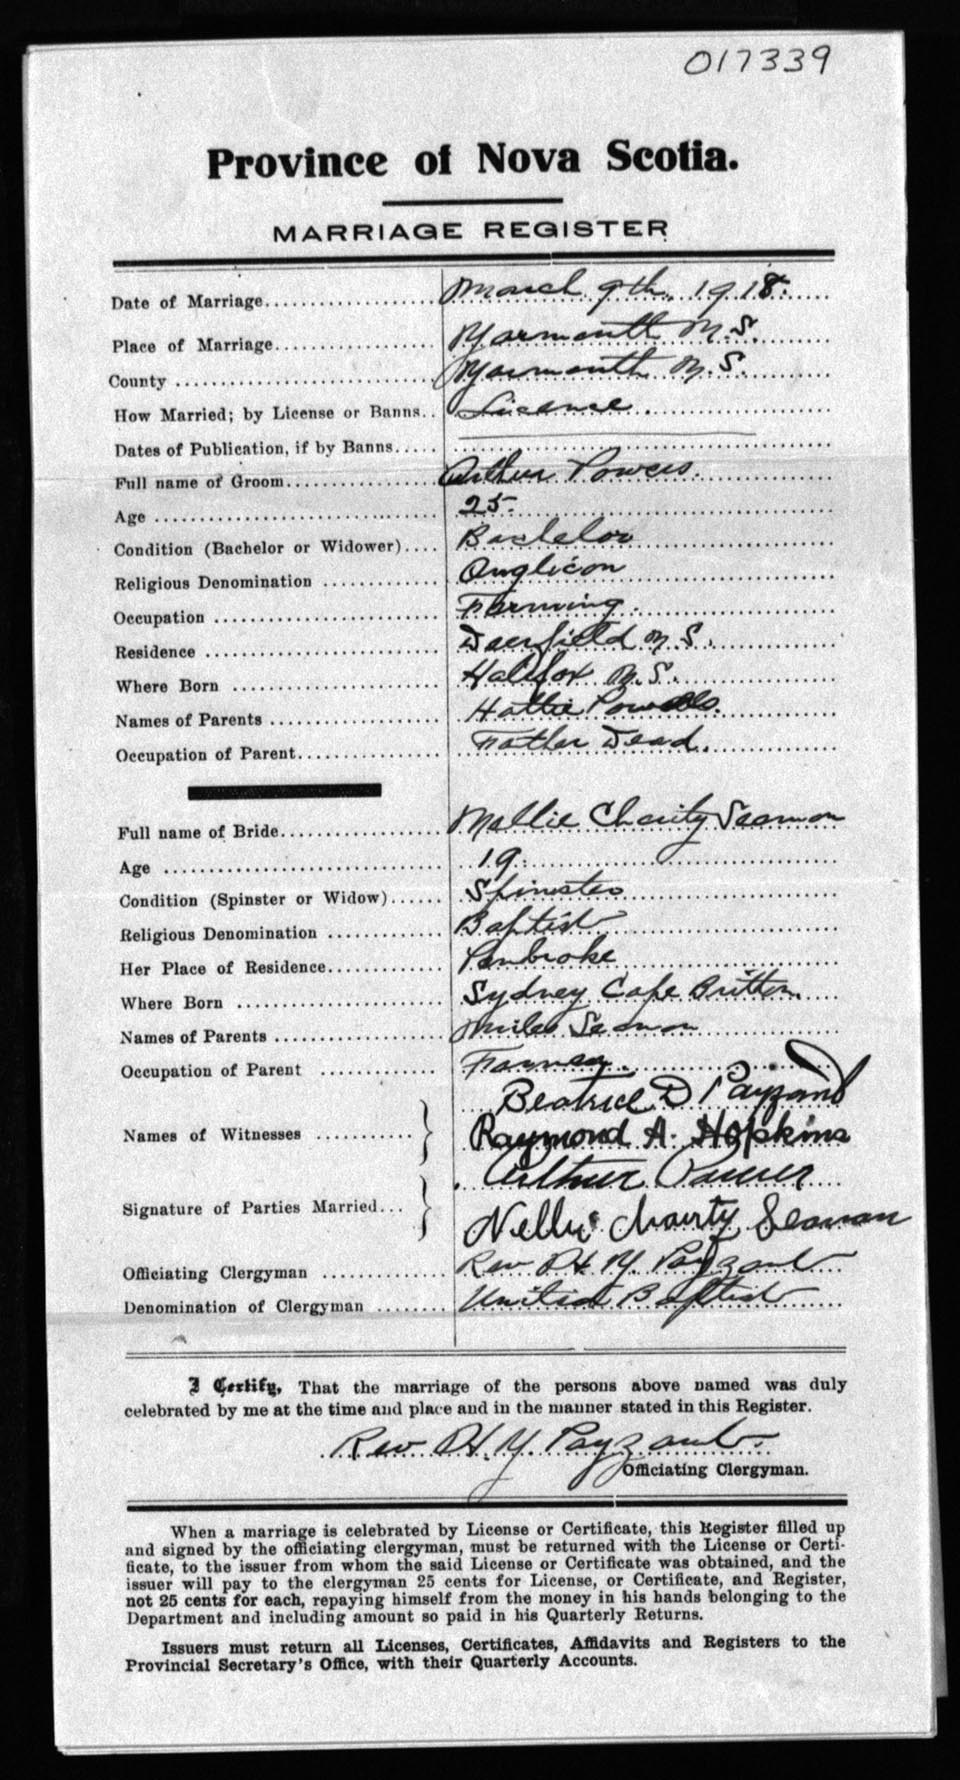 017339
Province of Nova Scotia.
MARRIAGE REGISTER
Date of Marriage.................... March 9th. 1918.
Place of Marriage.................. Yarmouth N.S.
County ............................. Yarmouth N.S.
How Married; by License or Banns.. License.
Dates of Publication, if by Banns.....
Full name of Groom................. Arthur Powers.
Age ................................. 25.
Condition (Bachelor or Widower).... Bachelor
Religious Denomination ............ Anglican
Occupation .......................... Farming.
Residence ........................... Deerfield N.S.
Where Born ........................ Halifax N.S.
Names of Parents ................... Hattie
Occupation of Parent............... Father Dead.
Full name of Bride.................. Mellie Charity Seaman
Age ................................. 19.
Condition (Spinster or Widow)...... Spinster
Religious Denomination ............ Baptist
Her Place of Residence............. Pembroke
Where Born ........................ Sydney Cape Britton.
Names of Parents ................... Miles Seaman
Occupation of Parent ............. Farmer.
Beatrice D Payzand
Names of Witnesses ........... Raymond A. Hopkins
Arthur Power
Signature of Parties Married... Nellie Charity Seaman
Officiating Clergyman ............. Rev H. Y. Payzant
Denomination of Clergyman ........ United Baptist
I Certify, That the marriage of the persons above named was duly
celebrated by me at the time and place and in the manner stated in this Register.
Rev H. Y. Payzant.
Officiating Clergyman.
When a marriage is celebrated by License or Certificate, this Register filled up
and signed by the officiating clergyman, must be returned with the License or Certi-
ficate, to the issuer from whom the said License or Certificate was obtained, and the
issuer will pay to the clergyman 25 cents for License, or Certificate, and Register,
not 25 cents for each, repaying himself from the money in his hands belonging to the
Department and including amount so paid in his Quarterly Returns.
Issuers must return all Licenses, Certificates, Affidavits and Registers to the
Provincial Secretary's Office, with their Quarterly Accounts.